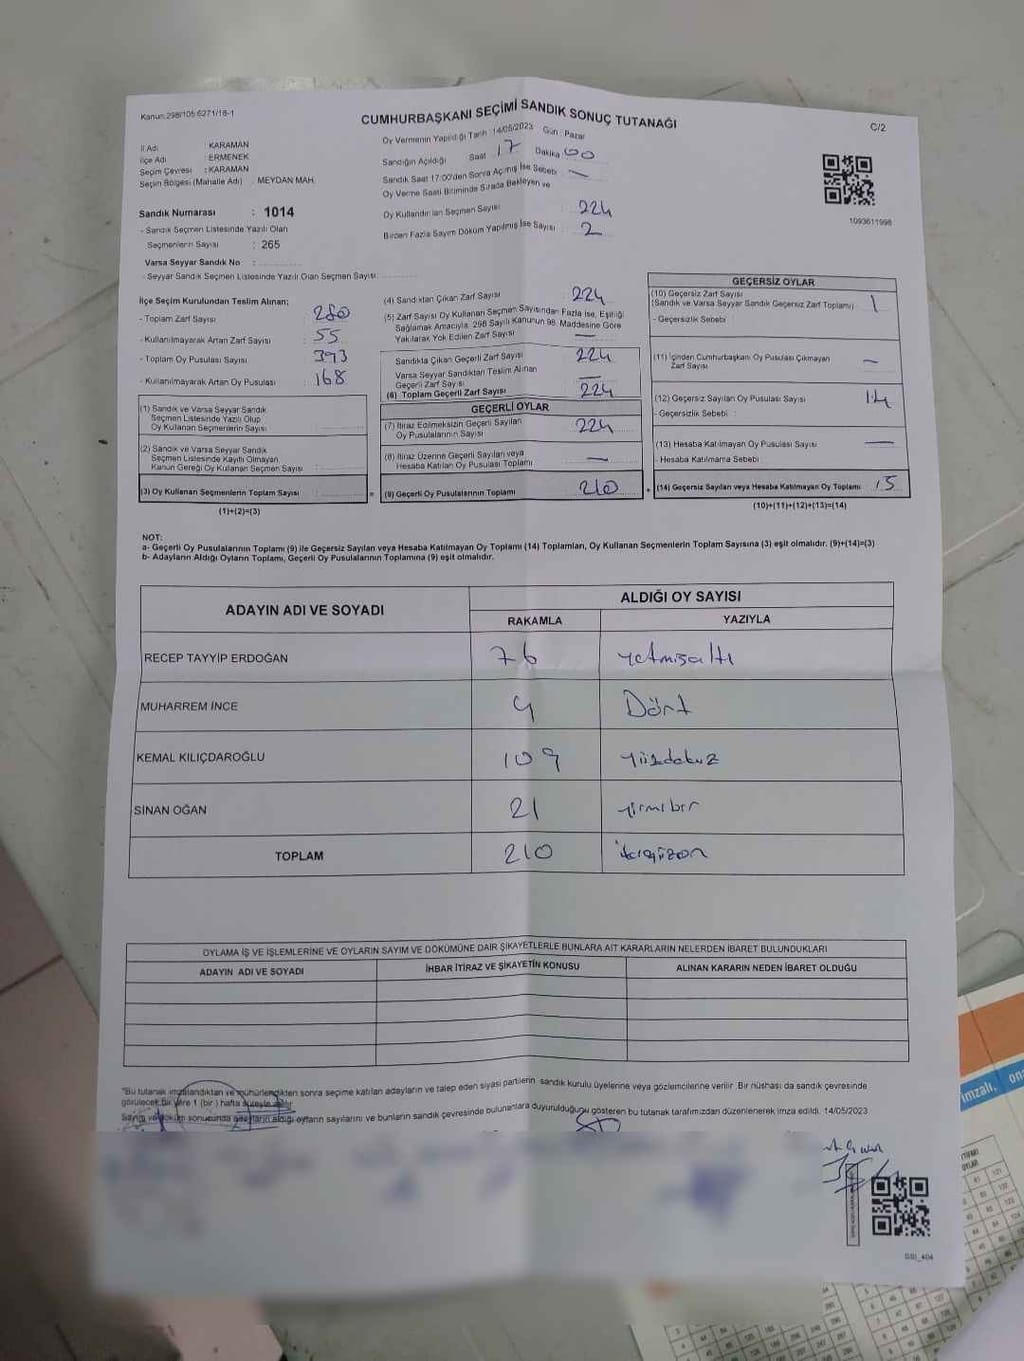 Kanun:298/105 6271/18-1
CUMHURBAŞKANI SEÇİMİ SANDIK SONUÇ TUTANAĞI
C/2
İl Adı : KARAMAN
İlçe Adı : ERMENEK
Seçim Çevresi : KARAMAN
Seçim Bölgesi (Mahalle Adı) : MEYDAN MAH.
Oy Vermenin Yapıldığı Tarih 14/05/2023 Gün : Pazar
Sandığın Açıldığı Saat 17 Dakika 00
Sandık Saat 17:00'den Sonra Açılmış İse Sebebi : —
Oy Verme Saati Bitiminde Sırada Bekleyen ve
Oy Kullandırılan Seçmen Sayısı 224
Birden Fazla Sayım Döküm Yapılmış İse Sayısı : 2
1093611998
Sandık Numarası : 1014
- Sandık Seçmen Listesinde Yazılı Olan
Seçmenlerin Sayısı : 265
Varsa Seyyar Sandık No :
- Seyyar Sandık Seçmen Listesinde Yazılı Olan Seçmen Sayısı:
İlçe Seçim Kurulundan Teslim Alınan;
- Toplam Zarf Sayısı : 280
- Kullanılmayarak Artan Zarf Sayısı : 55
- Toplam Oy Pusulası Sayısı : 393
- Kullanılmayarak Artan Oy Pusulası : 168
(1) Sandık ve Varsa Seyyar Sandık
Seçmen Listesinde Yazılı Olup
Oy Kullanan Seçmenlerin Sayısı :
(2) Sandık ve Varsa Seyyar Sandık
Seçmen Listesinde Kayıtlı Olmayan,
Kanun Gereği Oy Kullanan Seçmen Sayısı :
(3) Oy Kullanan Seçmenlerin Toplam Sayısı :
(1)+(2)=(3)
(4) Sandıktan Çıkan Zarf Sayısı : 224
(5) Zarf Sayısı Oy Kullanan Seçmen Sayısından Fazla ise, Eşitliği
Sağlamak Amacıyla, 298 Sayılı Kanunun 98. Maddesine Göre
Yakılarak Yok Edilen Zarf Sayısı : —
Sandıkta Çıkan Geçerli Zarf Sayısı : 224
Varsa Seyyar Sandıktan Teslim Alınan
Geçerli Zarf Sayısı : —
(6) Toplam Geçerli Zarf Sayısı : 224
GEÇERLİ OYLAR
(7) İtiraz Edilmeksizin Geçerli Sayılan
Oy Pusulalarının Sayısı : 224
(8) İtiraz Üzerine Geçerli Sayılan veya
Hesaba Katılan Oy Pusulası Toplamı : —
= (9) Geçerli Oy Pusulalarının Toplamı : 210
GEÇERSİZ OYLAR
(10) Geçersiz Zarf Sayısı
(Sandık ve Varsa Seyyar Sandık Geçersiz Zarf Toplamı) : 1
- Geçersizlik Sebebi :
(11) İçinden Cumhurbaşkanı Oy Pusulası Çıkmayan
Zarf Sayısı : —
(12) Geçersiz Sayılan Oy Pusulası Sayısı : 14
- Geçersizlik Sebebi :
(13) Hesaba Katılmayan Oy Pusulası Sayısı : —
- Hesaba Katılmama Sebebi :
+ (14) Geçersiz Sayılan veya Hesaba Katılmayan Oy Toplamı : 15
(10)+(11)+(12)+(13)=(14)
NOT:
a- Geçerli Oy Pusulalarının Toplamı (9) ile Geçersiz Sayılan veya Hesaba Katılmayan Oy Toplamı (14) Toplamları, Oy Kullanan Seçmenlerin Toplam Sayısına (3) eşit olmalıdır. (9)+(14)=(3)
b- Adayların Aldığı Oyların Toplamı, Geçerli Oy Pusulalarının Toplamına (9) eşit olmalıdır.
ADAYIN ADI VE SOYADI
ALDIĞI OY SAYISI
RAKAMLA YAZIYLA
RECEP TAYYİP ERDOĞAN 76 yetmişaltı
MUHARREM İNCE 4 Dört
KEMAL KILIÇDAROĞLU 109 yüzdokuz
SİNAN OĞAN 21 yirmibir
TOPLAM 210 ikiyüzon
OYLAMA İŞ VE İŞLEMLERİNE VE OYLARIN SAYIM VE DÖKÜMÜNE DAİR ŞİKAYETLERLE BUNLARA AİT KARARLARIN NELERDEN İBARET BULUNDUKLARI
ADAYIN ADI VE SOYADI İHBAR İTİRAZ VE ŞİKAYETİN KONUSU ALINAN KARARIN NEDEN İBARET OLDUĞU
"Bu tutanak imzalandıktan ve mühürlendikten sonra seçime katılan adayların ve talep eden siyasi partilerin sandık kurulu üyelerine veya gözlemcilerine verilir. Bir nüshası da sandık çevresinde
görülecek bir yere 1 (bir) hafta süreyle asılır.
Sayım ve döküm sonucunda adayların aldığı oyların sayılarını ve bunların sandık çevresinde bulunanlara duyurulduğunu gösteren bu tutanak tarafımızdan düzenlenerek imza edildi. 14/05/2023
SSI_404
imzalı,